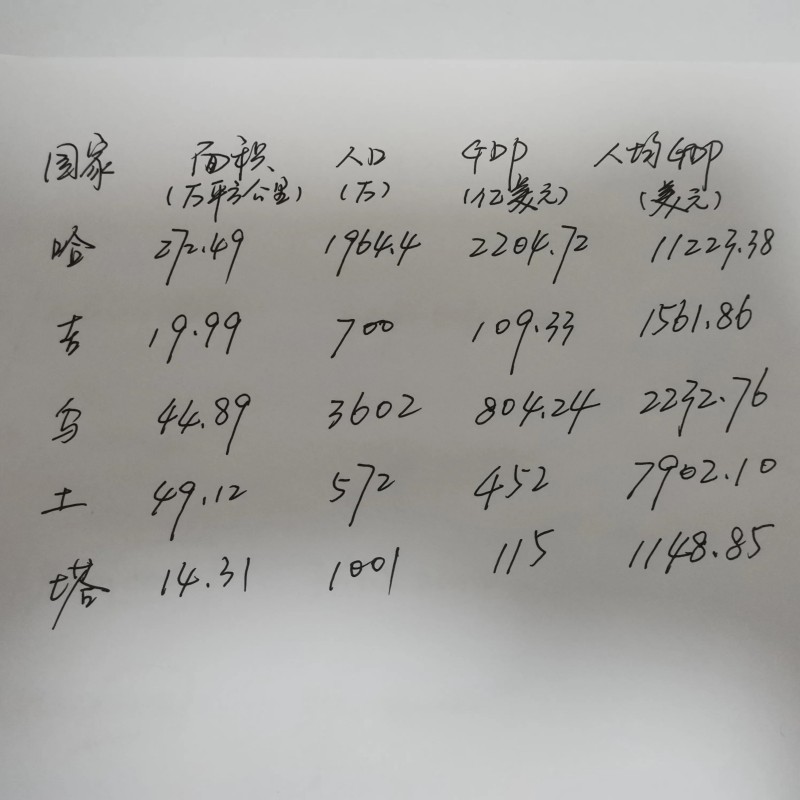 国家 面积 人口 GDP 人均GDP
(万平方公里) (万) (亿美元) (美元)
哈 272.49 1964.4 2204.72 11223.38
吉 19.99 700 109.33 1561.86
乌 44.89 3602 804.24 2232.76
土 49.12 572 452 7902.10
塔 14.31 1001 115 1148.85